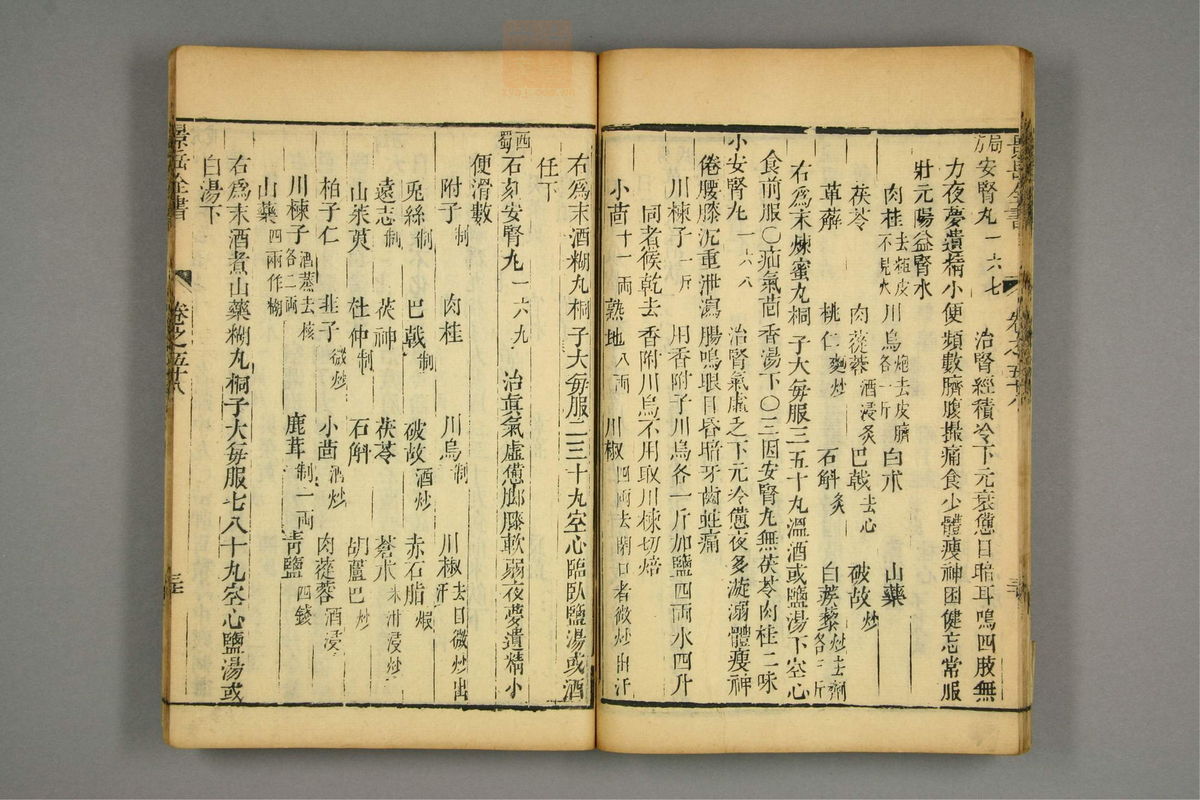 景岳全書 卷之五十八
局方安腎丸一六七 治腎經積冷下元衰憊目暗耳鳴四肢無
力夜夢遺精小便頻數臍腹撮痛食少體瘦神困健忘常服
壯元陽益腎水
肉桂去粗皮不見火 川烏炮去皮臍各一斤 白朮 山藥
茯苓 肉蓯蓉酒浸炙 巴戟去心 破故炒
萆薢 桃仁麵炒 石斛炙 白蒺藜炒去刺各三斤
右爲末煉蜜丸桐子大每服三五十丸溫酒或鹽湯下空心
食前服○疝氣茴香湯下○三因安腎丸無茯苓肉桂二味
小安腎丸一六八 治腎氣虛乏下元冷憊夜多漩溺體瘦神
倦腰膝沉重泄瀉腸鳴眼目昏暗牙齒蛀痛
川楝子一斤 用香附子川烏各一斤加鹽四兩水四升
同煮候乾去香附川烏不用取川楝切焙
小茴十一兩 熟地八兩 川椒四兩去閉口者微炒出汗
右爲末酒糊丸桐子大每服二三十丸空心臨臥鹽湯或酒
任下
西蜀石刻安腎丸一六九 治眞氣虛憊腳膝軟弱夜夢遺精小
便滑數
附子制 肉桂 川烏制 川椒去目微炒出汗
兎絲制 巴戟制 破故酒炒 赤石脂煆
遠志制 茯神 茯苓 蒼朮米泔浸炒
山茱萸 杜仲制 石斛 胡蘆巴炒
柏子仁 韭子微炒 小茴酒炒 肉蓯蓉酒浸
川楝子酒蒸去核各二兩 鹿茸制一兩 靑鹽四錢
山藥四兩作糊
右爲末酒煮山藥糊丸桐子大每服七八十丸空心鹽湯或
白湯下
景岳全書 卷之五十八